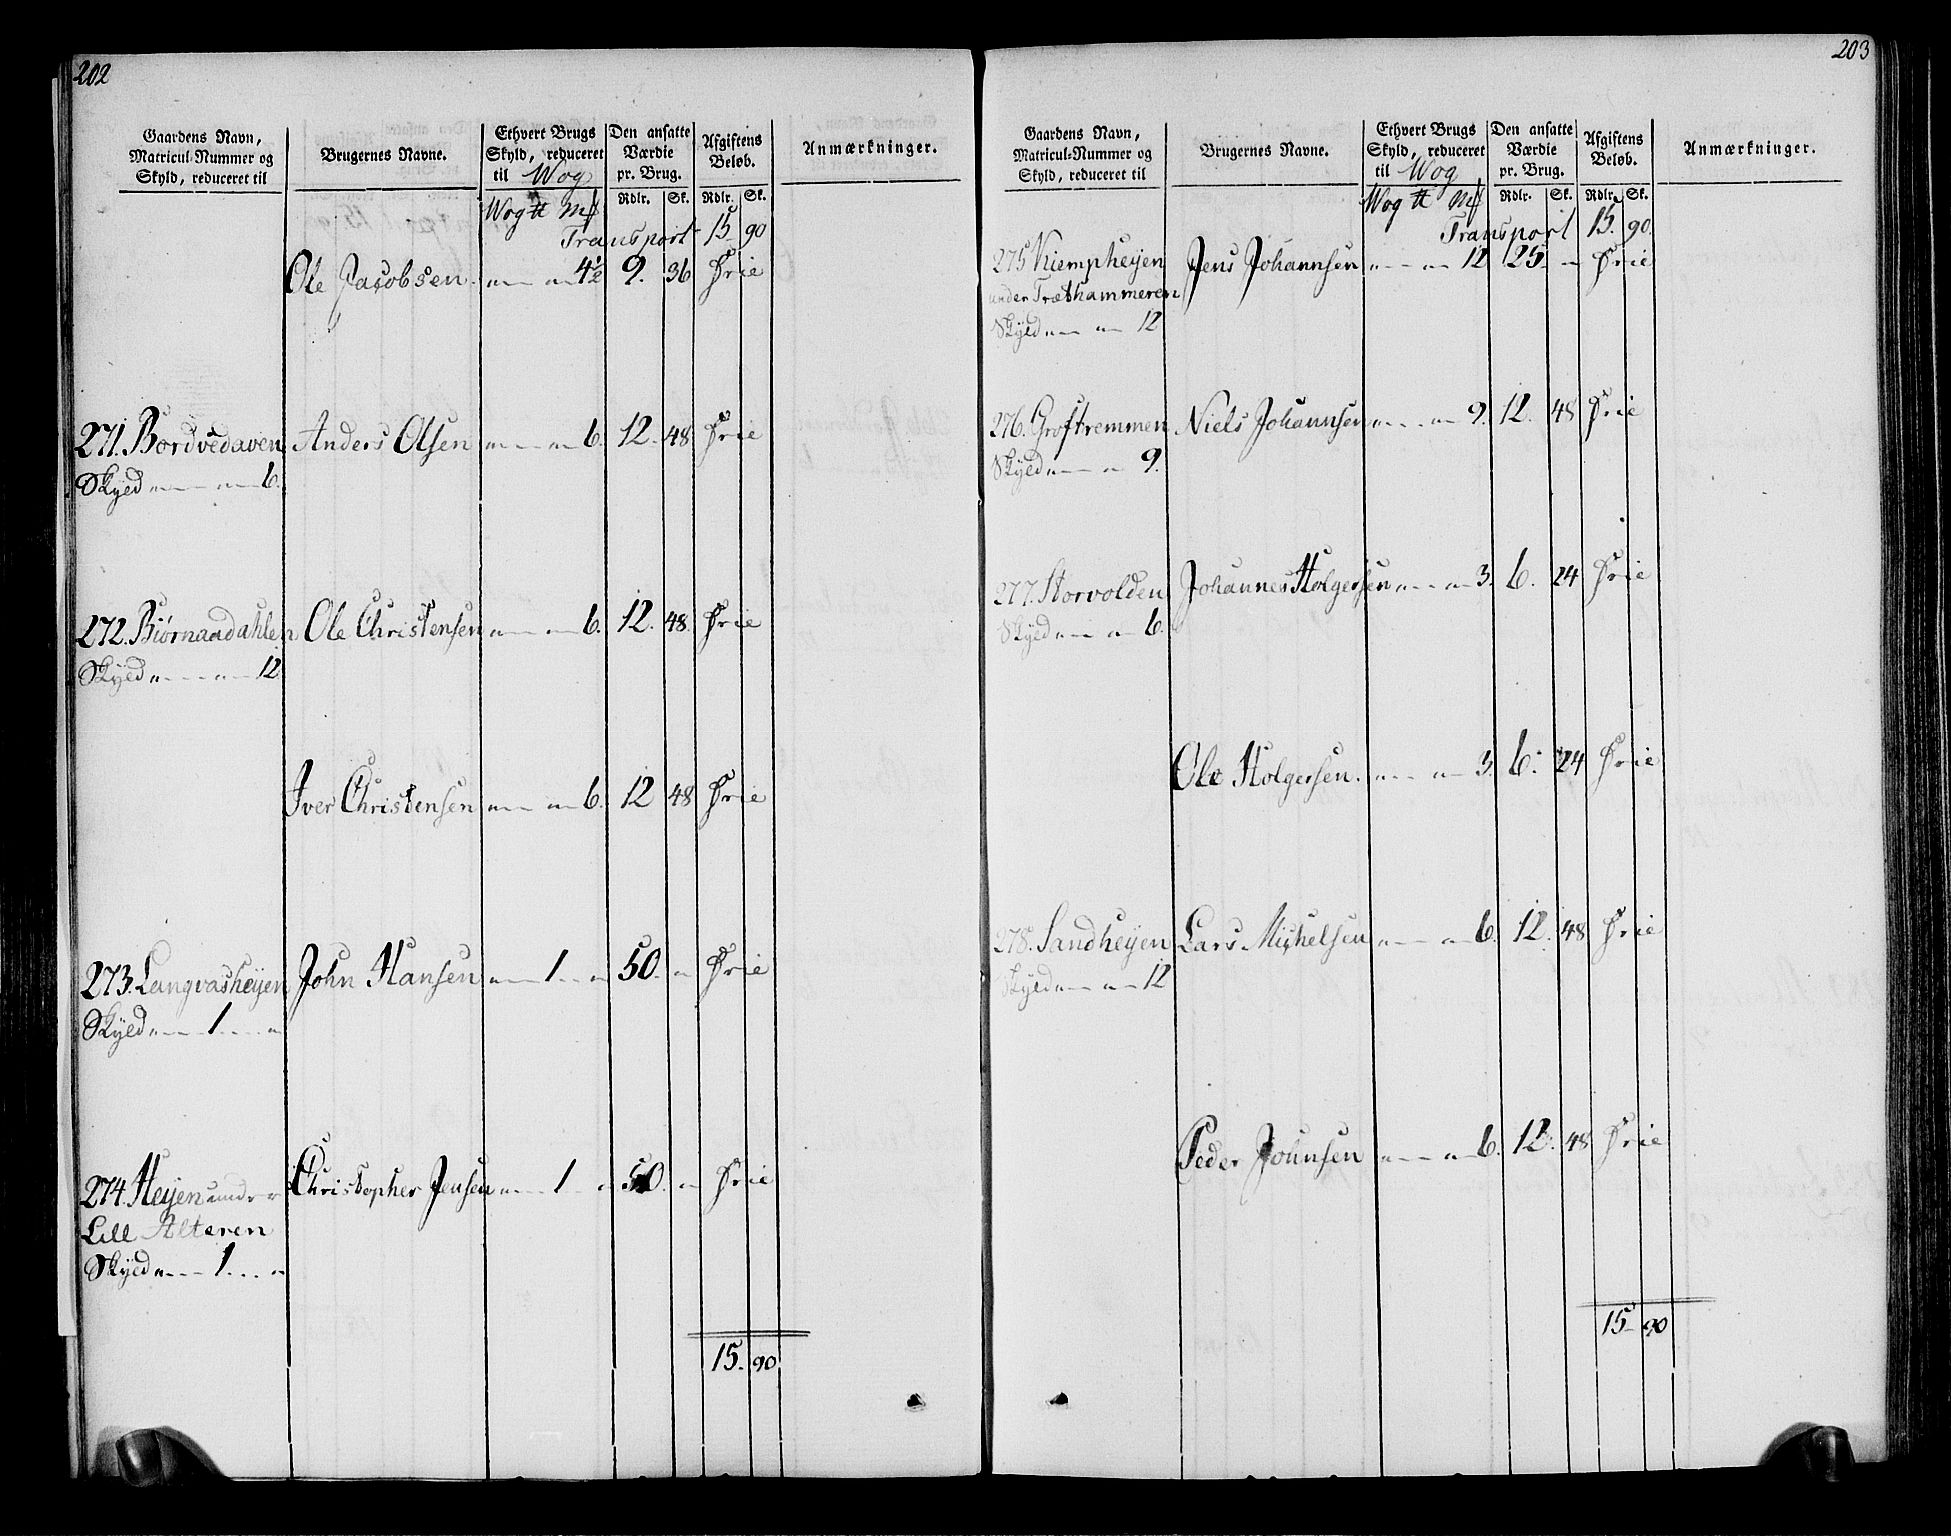 202
Gaardens Navn, Matricul-Nummer og Skyld, reduceret til
Brugernes Navne.
Ethvert Brugs Skyld, reduceret til Wog
Den ansatte Værdie pr. Brug.
Afgiftens Beløb.
Anmærkninger.
Wog ℔ Mk Rdlr. Sk. Rdlr. Sk.
Transport 15 90
Ole Jacobsen. „ — „ 4½ 9. 36 Frie
271. Bordvedaven Anders Olsen „ — „ 6. 12. 48 Frie
Skyld „ — „ 6.
272. Biørnaadahlen Ole Christensen „ — „ 6. 12. 48. Frie
Skyld „ — „ 12
Iver Christensen „ — „ 6. 12 48 Frie
273. Langvasheyen John Hansen „ — 1 — „ 50. „ Frie
Skyld „ — 1 — „
274. Heyen under Christopher Jensen „ — 1 — „ 50 „ Frie
Lill Alteren
Skyld „ — 1 — „
15. 90
203
Gaardens Navn, Matricul-Nummer og Skyld, reduceret til
Brugernes Navne.
Ethvert Brugs Skyld, reduceret til Wog
Den ansatte Værdie pr. Brug.
Afgiftens Beløb.
Anmærkninger.
Wog ℔ Mk Rdlr. Sk. Rdlr. Sk.
Transport 15. 90.
275 Kiempheyen Jens Johannsen „ — „ 12 25. „ Frie
under Træthammeren
Skyld „ — „ 12
276. Groftremmen Niels Johannsen „ — „ 9. 12. 48 Frie
Skyld „ — „ 9.
277. Storvolden Johannes Holgersen „ — „ 3. 6. 24 Frie
Skyld „ — „ 6.
Ole Holgersen. „ — „ 3. 6. 24 Frie
278. Sandheyen Lars Michelsen „ — „ 6. 12. 48 Frie
Skyld „ — „ 12
Peder Jounsen „ — „ 6. 12. 48 Frie
15 90